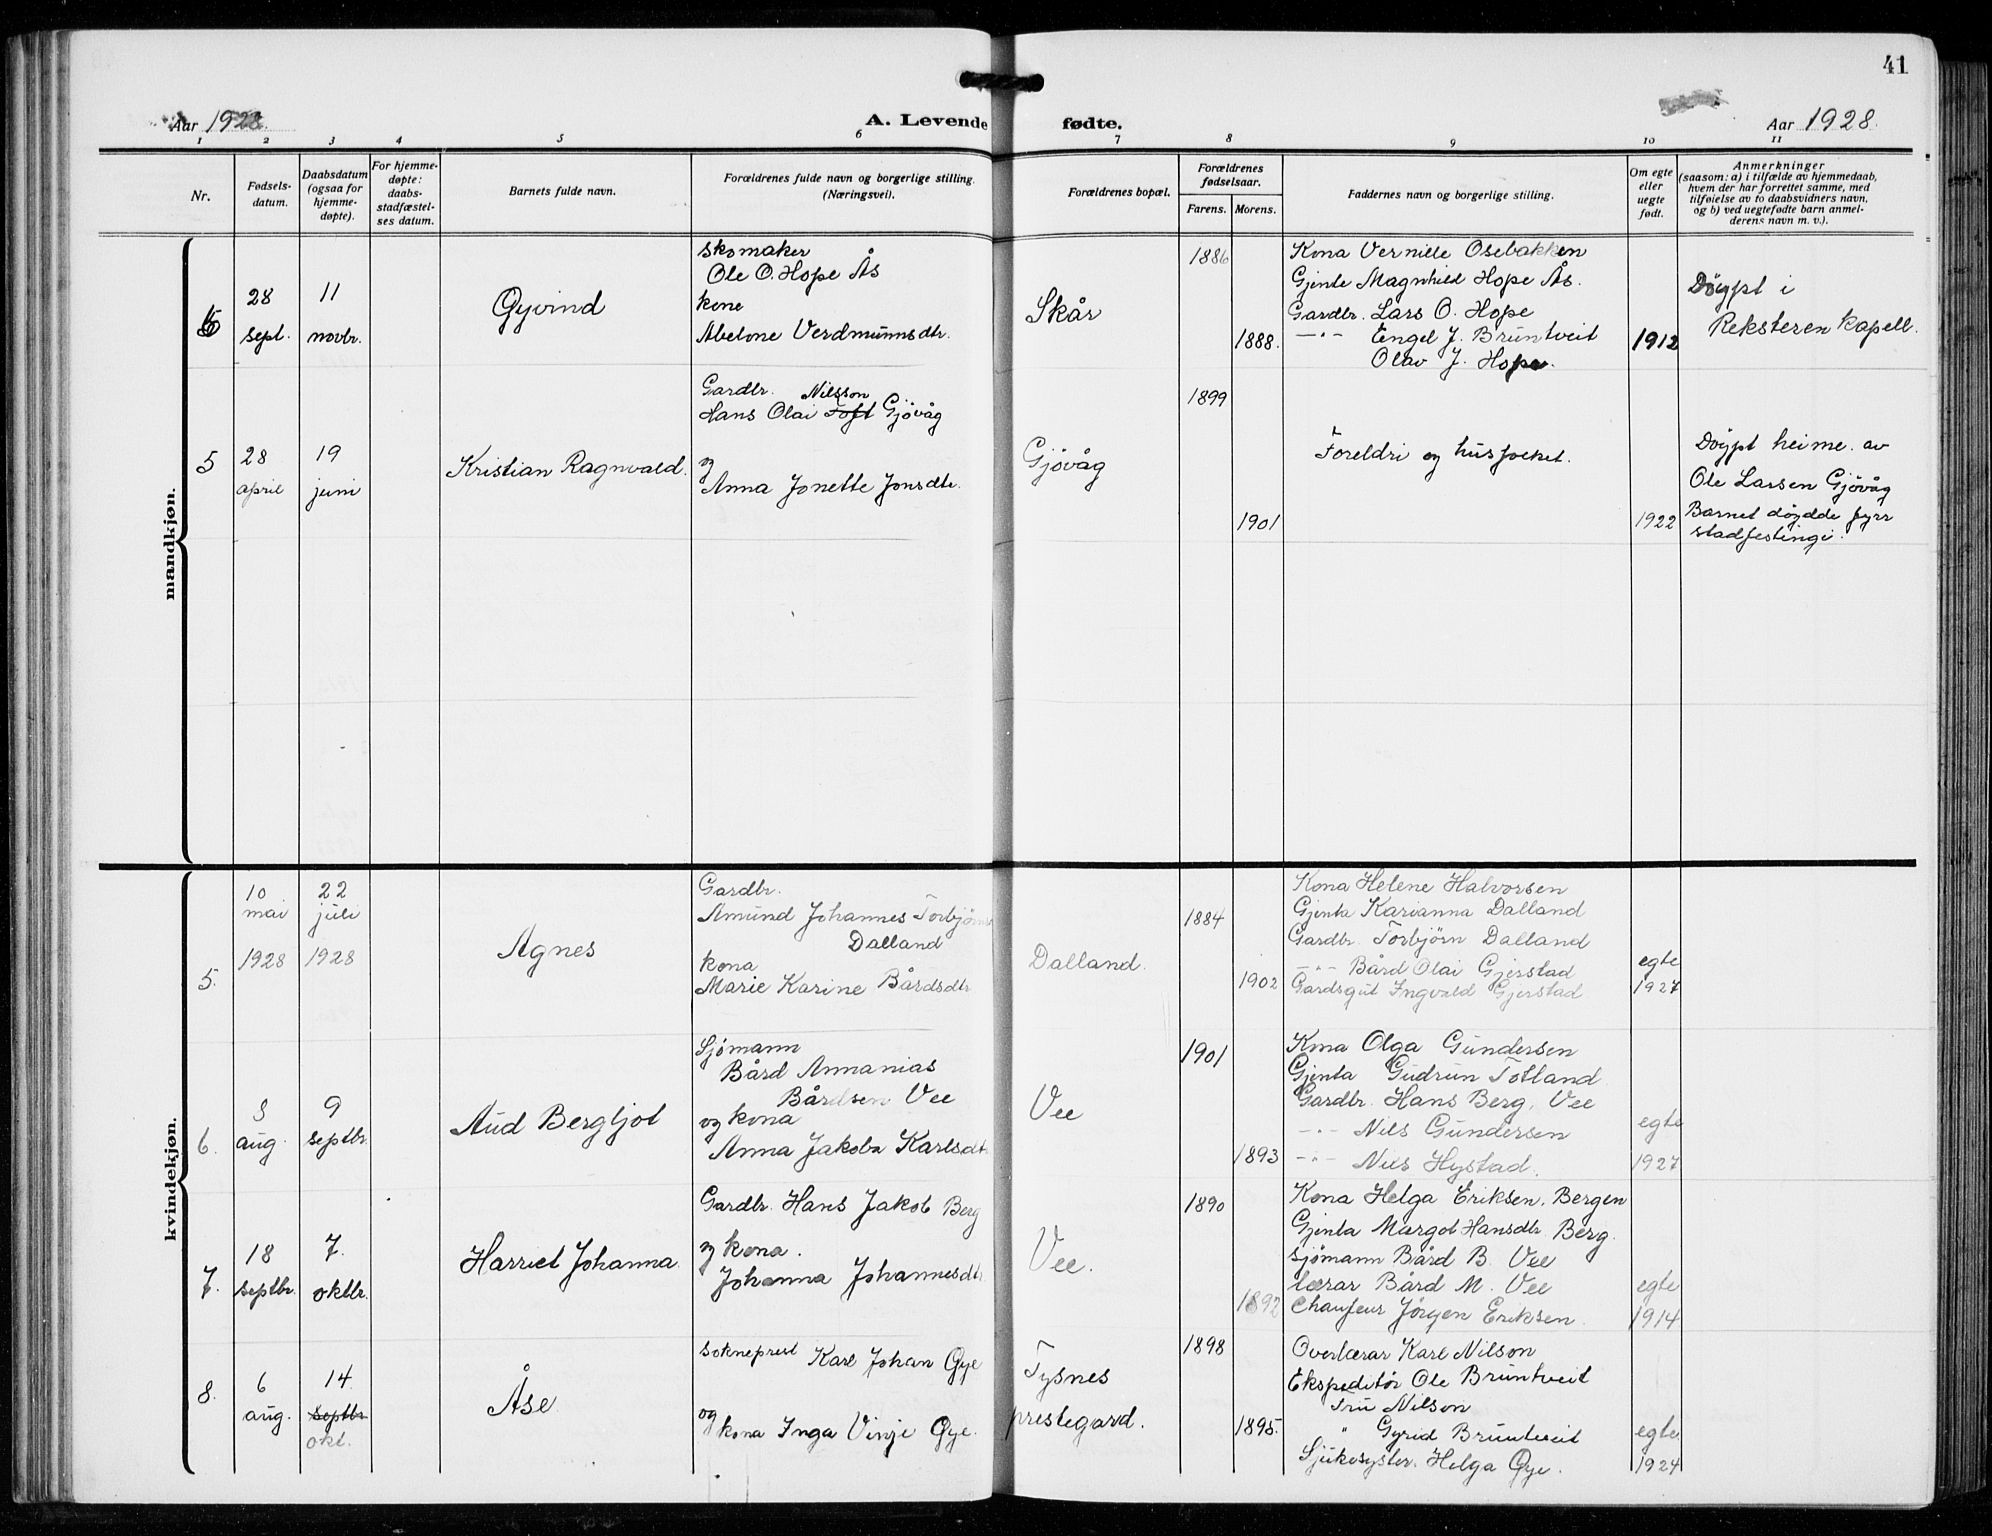 41
Aar 1928.
A. Levende fødte.
Aar 1928.
1 2 3 4 5 6 7 8 9 10 11
Nr.
Fødsels-
datum.
Daabsdatum
(ogsaa for
hjemme-
døpte).
For hjemme-
døpte:
daabs-
stadfæstel-
ses datum.
Barnets fulde navn.
Forældrenes fulde navn og borgerlige stilling.
(Næringsvei).
Forældrenes bopæl.
Forældrenes
fødselsaar.
Farens. Morens.
Faddernes navn og borgerlige stilling.
Om egte
eller
uegte
født.
Anmerkninger
(saasom: a) i tilfælde av hjemmedaab,
hvem der har forrettet samme, med
tilføielse av to daabsvidners navn,
og b) ved uegtefødte barn anmel-
derens navn m. v.).
mandkjøn.
28
sept.
11
novbr.
Øyvind
Skomaker
Ole O. Hope Ås
kone
Abelone Verdmunnsdtr.
Skår
1886
1888.
Kona Vernille Osebakken
Gjente Magnhild Hope Ås.
Gardbr. Lars O. Hope
—"— Engel J. Bruntveit
Olav J. Hope.
1912
Døypt i
Reksteren kapell.
5
28
april
19
juni
Kristian Ragnvald.
Gardbr. Nilsson
Hans Olai Toft Gjövåg
og
Anna Jonette Jonsdtr.
Gjövåg
1899
1901
Foreldri og husfolket.
1922
Døypt heime av
Ole Larsen Gjövåg
Barnet döydde fyrr
stadfestingi.
kvindekjøn.
5.
10
mai
1928
22
juli
1928
Agnes
Gardbr.
Amund Johannes Torbjörns
Dalland
kona
Marie Karine Bårdsdtr
Dalland.
1884
1902
Kona Helene Halvorsen
Gjenta Karianna Dalland
Gardbr. Torbjörn Dalland
—"— Bård Olai Gjerstad
Gardsgut Ingvald Gjerstad
egte
1927
6.
8
aug.
9
septbr.
Aud Bergljot
Sjömann
Bård Annanias
Bårdsen Vee
og kona
Anna Jakoba Karlsdtr
Vee
1901
1893
Kona Olga Gundersen
Gjenta Gudrun Totland
Gardbr. Hans Berg, Vee
—"— Nils Gundersen
—"— Nils Hystad.
egte
1927
7.
18
septbr.
7.
oktbr.
Harriet Johanna.
Gardbr. Hans Jakob Berg
og kona.
Johanna Johannesdtr
Vee.
1890
1892
Kona Helga Eriksen, Bergen
Gjenta Margot Hansdtr Berg.
Sjömann Bård B. Vee
lærar Bård M. Vee
Chaufeur Jörgen Eriksen.
egte
1914
8.
6
aug.
14
septbr
okt.
Åse.
Sokneprest Karl Johan Øye
og
kona Inga Vinje Øye.
Tysnes
prestegard.
1898
1895.
Overlærar Karl Nilson
Ekspeditör Ole Bruntveit
Fru Nilson
" Gyrid Bruntveit
Sjukesyster. Helga Øye.
egte
1924